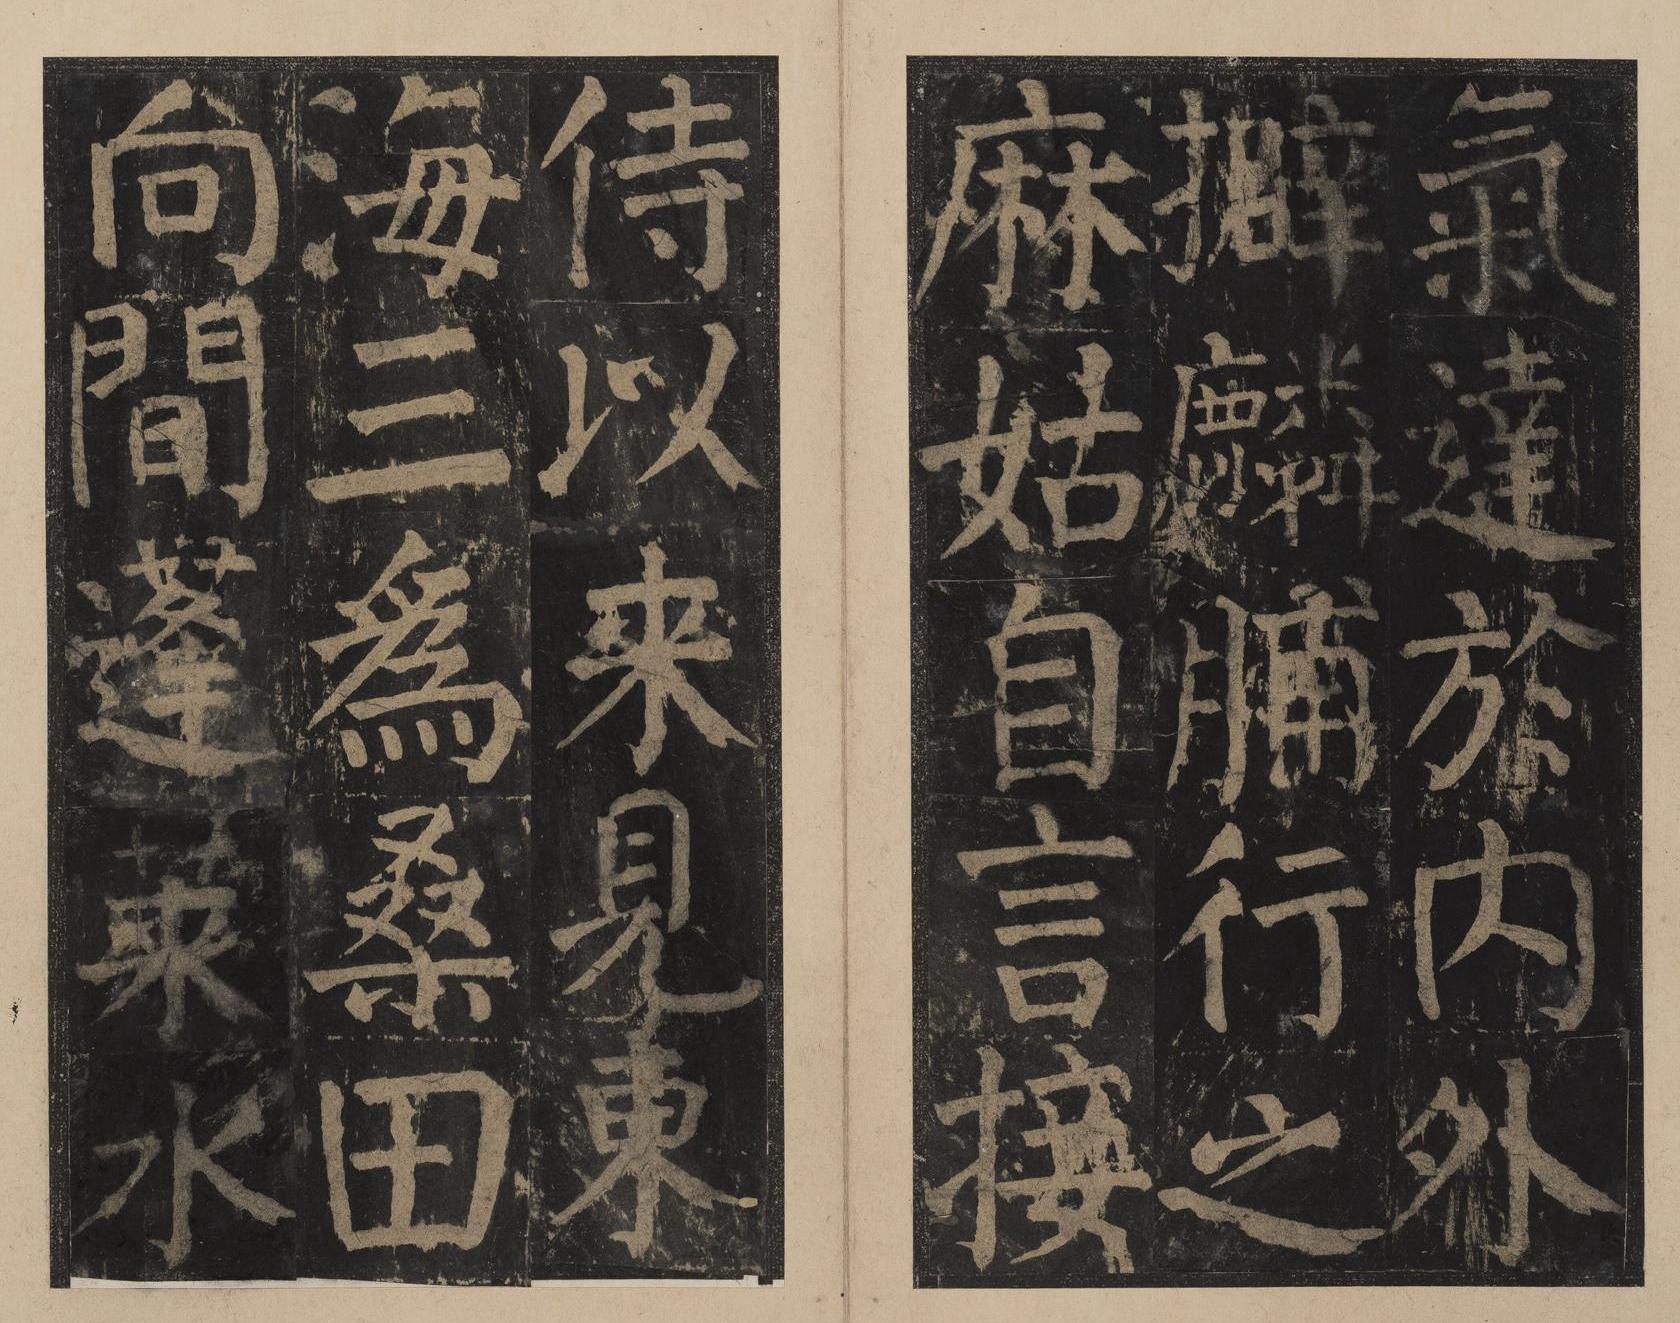 氣達於内外
擗麟脯行之
麻姑自言接
侍以来見東
海三爲桑田
向間蓬莱水